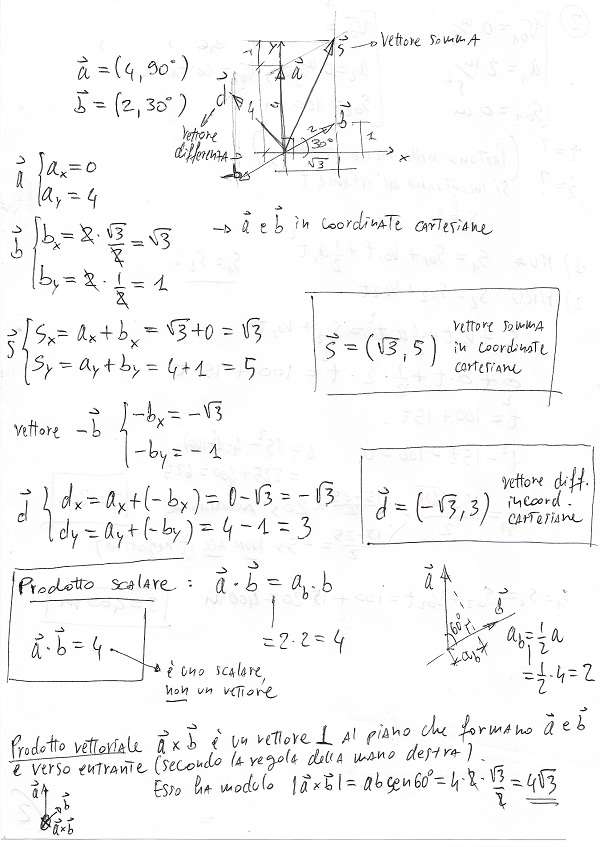 a⃗ = (4, 90°)
b⃗ = (2, 30°)
y
s⃗ → vettore somma
a⃗
d⃗
4
2
b⃗
30°
1
1
√3
x
vettore
differenza
-b⃗
a⃗ { ax = 0
ay = 4
b⃗ { bx = 2 · √3/2 = √3
by = 2 · 1/2 = 1
→ a⃗ e b⃗ in coordinate cartesiane
s⃗ { sx = ax + bx = √3 + 0 = √3
sy = ay + by = 4 + 1 = 5
s⃗ = (√3, 5) vettore somma
in coordinate
cartesiane
vettore -b⃗ { -bx = -√3
-by = -1
d⃗ { dx = ax + (-bx) = 0 - √3 = -√3
dy = ay + (-by) = 4 - 1 = 3
d⃗ = (-√3, 3) vettore diff.
in coord.
cartesiane
Prodotto scalare : a⃗ · b⃗ = ab · b
= 2 · 2 = 4
a⃗ · b⃗ = 4
è uno scalare,
non un vettore
a⃗
b⃗
60°
ab
ab = 1/2 a
= 1/2 · 4 = 2
Prodotto vettoriale a⃗ x b⃗ è un vettore ⊥ al piano che formano a⃗ e b⃗
e verso entrante (secondo la regola della mano destra).
Esso ha modulo |a⃗ x b⃗| = ab sen 60° = 4 · 2 · √3/2 = 4√3
a⃗
b⃗
a⃗ x b⃗